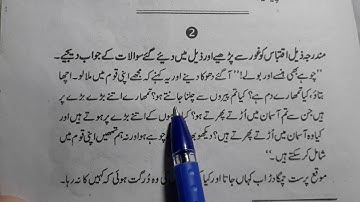 2
مندرجہ ذیل اقتباس کو غور سے پڑھیے اور ذیل میں دیئے گئے سوالات کے جواب دیجیے۔
"چوہے بھی ہنسے اور بولے! "آ گئے دھوکا دینے اور یہ کہنے کہ مجھے اپنی قوم میں ملا لو۔ اچھا
بتاؤ، کیا تمھارے دم ہے؟ کیا تم پیروں سے چلنا جانتے ہو؟ تمھارے اتنے بڑے بڑے پر
ہیں جن سے تم آسمان میں اڑتے پھرتے ہو؟ کیا کے اتنے بڑے پر ہوتے ہیں اور
کیا وہ آسمان میں اڑتے پھرتے ہیں؟ دیکھو چوہے ہو اور نہ ہم تمھیں اپنی قوم میں
شامل کر سکتے ہیں۔"
موقع پرست چمگادڑ اب کہاں جاتا اور کیا وہ درگت ہوئی کہ کہیں کا نہ رہا۔